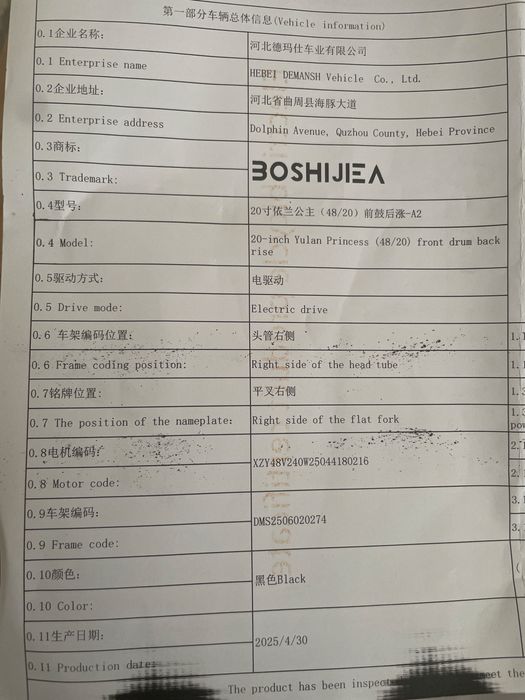 第一部分车辆总体信息(Vehicle information)
0.1企业名称:
河北德玛仕车业有限公司
0.1 Enterprise name
HEBEI DEMANSH Vehicle Co., Ltd.
0.2企业地址:
河北省曲周县海豚大道
0.2 Enterprise address
Dolphin Avenue, Quzhou County, Hebei Province
0.3商标:
0.3 Trademark:
BOSHIJIEA
0.4型号:
20寸依兰公主（48/20）前鼓后涨-A2
0.4 Model:
20-inch Yulan Princess (48/20) front drum back
rise
0.5驱动方式:
电驱动
0.5 Drive mode:
Electric drive
0.6 车架编码位置:
头管右侧
0.6 Frame coding position:
Right side of the head tube
0.7铭牌位置:
平叉右侧
0.7 The position of the nameplate:
Right side of the flat fork
0.8电机编码:
XZY48V240W25044180216
0.8 Motor code:
0.9车架编码:
DMS2506020274
0.9 Frame code:
0.10颜色:
黑色Black
0.10 Color:
0.11生产日期:
2025/4/30
0.11 Production date:
The product has been inspec